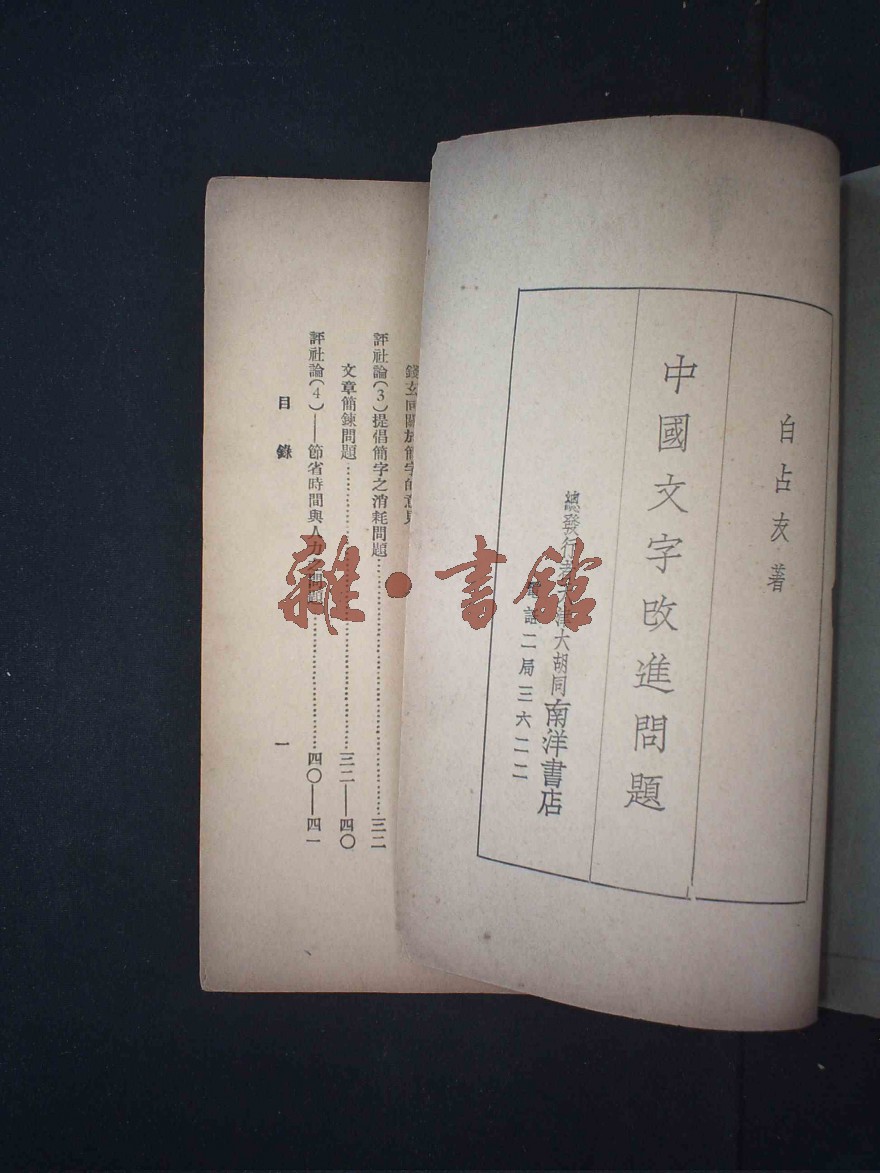 白占友著
中國文字改進問題
總發行者天津大胡同南洋書店
電話二局三六二二
錢玄同關於簡字的意見
評社論(3)提倡簡字之消耗問題……三二
文章簡鍊問題……三二——四〇
評社論(4)——節省時間與人力之問題……四〇——四一
目錄
一
雜·書館